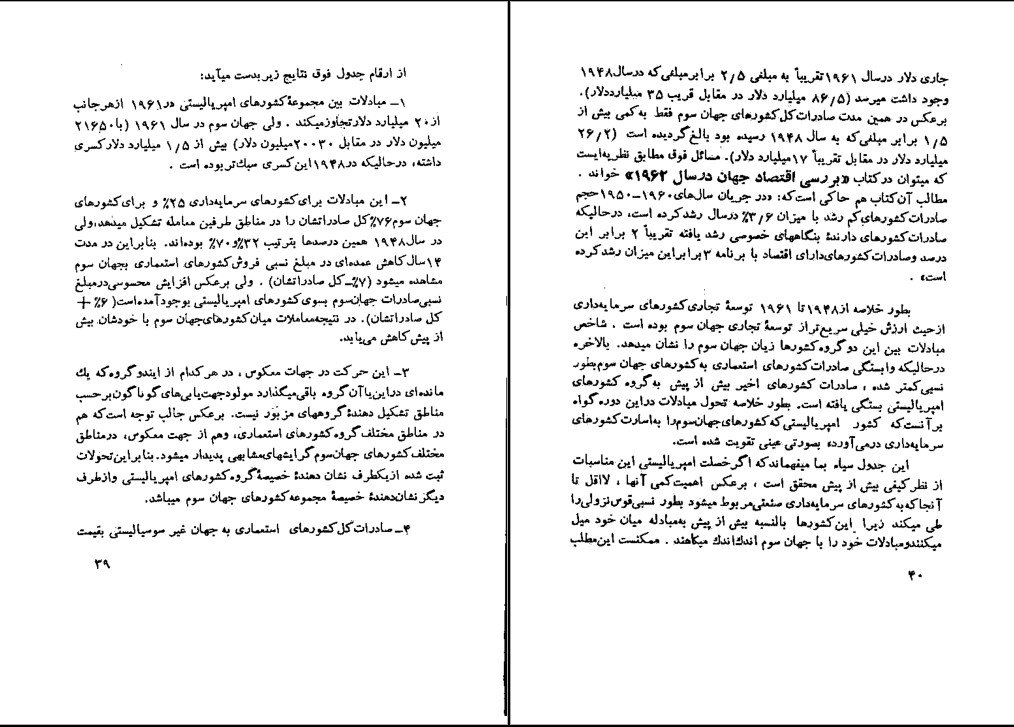 از ارقام جدول فوق نتایج زیر بدست میآید:
۱ــ مبادلات بین مجموعهٔ کشورهای امپریالیستی در ۱۹۶۱ از هر جانب
از ۲۰ میلیارد دلار تجاوز میکند . ولی جهان سوم در سال ۱۹۶۱ (با ۲۱۶۵۰
میلیون دلار در مقابل ۲۰۰۳۰ میلیون دلار) بیش از ۱/۵ میلیارد دلار کسری
داشته، در حالیکه در ۱۹۴۸ این کسری سبك تر بوده است .
۲ــ این مبادلات برای کشورهای سرمایه‌داری ۲۵٪ و برای کشورهای
جهان سوم ۷۶٪ کل صادراتشان را در مناطق طرفین معامله تشکیل میدهد، ولی
در سال ۱۹۴۸ همین درصدها بترتیب ۳۲٪ و ۷۰٪ بوده‌اند. بنابراین در مدت
۱۴ سال کاهش عمده‌ای در مبلغ نسبی فروش کشورهای استعماری بجهان سوم
مشاهده میشود (۷٪ــ کل صادراتشان) . ولی برعکس افزایش محسوسی در مبلغ
نسبی صادرات جهان سوم بسوی کشورهای امپریالیستی بوجود آمده است (۶٪ +
کل صادراتشان). در نتیجه معاملات میان کشورهای جهان سوم با خودشان بیش
از پیش کاهش می‌یابد.
۳ــ این حرکت در جهات معکوس ، در هر کدام از ایندو گروه که یك
مانده‌ای در این یا آن گروه باقی میگذارد مولود جهت‌یابی‌های گوناگون برحسب
مناطق تشکیل دهندهٔ گروههای مزبور نیست. برعکس جالب توجه است که هم
در مناطق مختلف گروه کشورهای استعماری، وهم از جهت معکوس، در مناطق
مختلف کشورهای جهان سوم گرایشهای مشابهی پدیدار میشود. بنابراین تحولات
ثبت شده از یکطرف نشان دهندهٔ خصیصهٔ گروه کشورهای امپریالیستی و از طرف
دیگر نشان‌دهندهٔ خصیصهٔ مجموعه کشورهای جهان سوم میباشد.
۴ــ صادرات کل کشورهای استعماری به جهان غیر سوسیالیستی بقیمت
۳۹
جاری دلار در سال ۱۹۶۱ تقریباً به مبلغی ۲/۵ برابر مبلغی که در سال ۱۹۴۸
وجود داشت میرسد (۸۶/۵ میلیارد دلار در مقابل قریب ۳۵ میلیارد دلار).
برعکس در همین مدت صادرات کل کشورهای جهان سوم فقط به کمی بیش از
۱/۵ برابر مبلغی که به سال ۱۹۴۸ رسیده بود بالغ گردیده است (۲۶/۲
میلیارد دلار در مقابل تقریباً ۱۷ میلیارد دلار). مسائل فوق مطابق نظریه‌ایست
که میتوان در کتاب «بررسی اقتصاد جهان در سال ۱۹۶۲» خواند .
مطالب آن کتاب هم حاکی است که: «در جریان سال‌های ۱۹۶۰ــ۱۹۵۰ حجم
صادرات کشورهای کم رشد با میزان ۳/۶٪ در سال رشد کرده است، در حالیکه
صادرات کشورهای دارندهٔ بنگاههای خصوصی رشد یافته تقریباً ۲ برابر این
درصد و صادرات کشورهای دارای اقتصاد با برنامه ۳ برابر این میزان رشد کرده
است» .
بطور خلاصه از ۱۹۴۸ تا ۱۹۶۱ توسعهٔ تجاری کشورهای سرمایه‌داری
از حیث ارزش خیلی سریع‌تر از توسعهٔ تجاری جهان سوم بوده است . شاخص
مبادلات بین این دو گروه کشورها زیان جهان سوم را نشان میدهد. بالاخره
در حالیکه وابستگی صادرات کشورهای استعماری به کشورهای جهان سوم بطور
نسبی کمتر شده ، صادرات کشورهای اخیر بیش از پیش به گروه کشورهای
امپریالیستی بستگی یافته است. بطور خلاصه تحول مبادلات در این دوره گواه
بر آنست که کشور امپریالیستی که کشورهای جهان سوم را به اسارت کشورهای
سرمایه‌داری درمی‌آورد» بصورتی عینی تقویت شده است.
این جدول سیاه بما میفهماند که اگر خصلت امپریالیستی این مناسبات
از نظر کیفی بیش از پیش محقق است ، برعکس اهمیت کمی آنها ، لااقل تا
آنجا که به کشورهای سرمایه‌داری صنعتی مربوط میشود بطور نسبی قوس نزولی را
طی میکند زیرا این کشورها بالنسبه بیش از پیش به مبادله میان خود میل
میکنند و مبادلات خود را با جهان سوم اندك اندك میکاهند . ممکنست این مطلب
۴۰